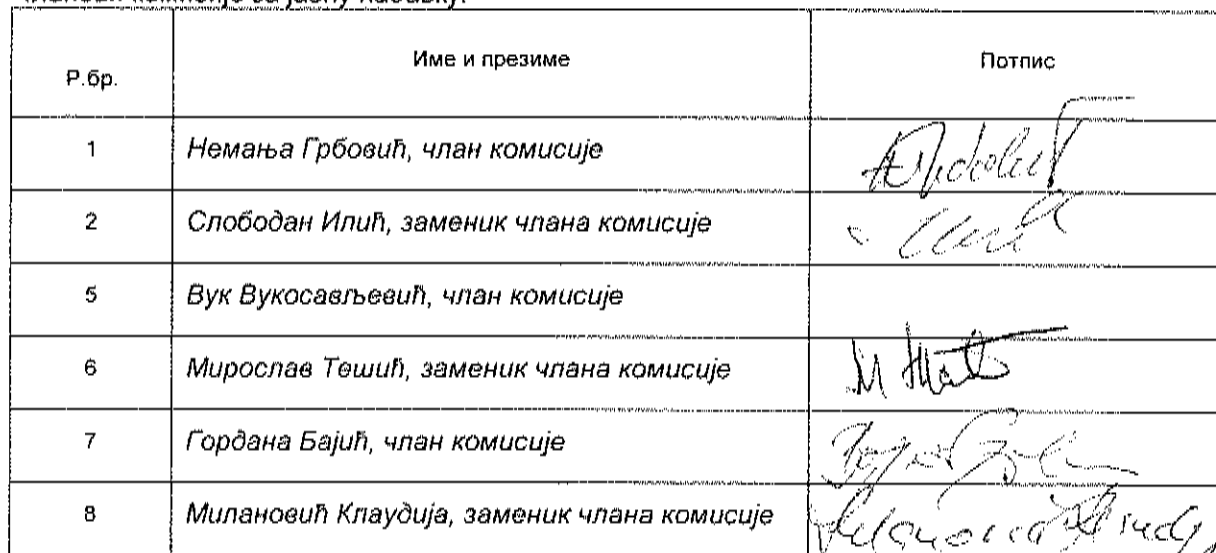 Р.бр. Име и презиме Потпис
1 Немања Грбовић, члан комисије
2 Слободан Илић, заменик члана комисије
5 Вук Вукосављевић, члан комисије
6 Мирослав Тешић, заменик члана комисије
7 Гордана Бајић, члан комисије
8 Милановић Клаудија, заменик члана комисије